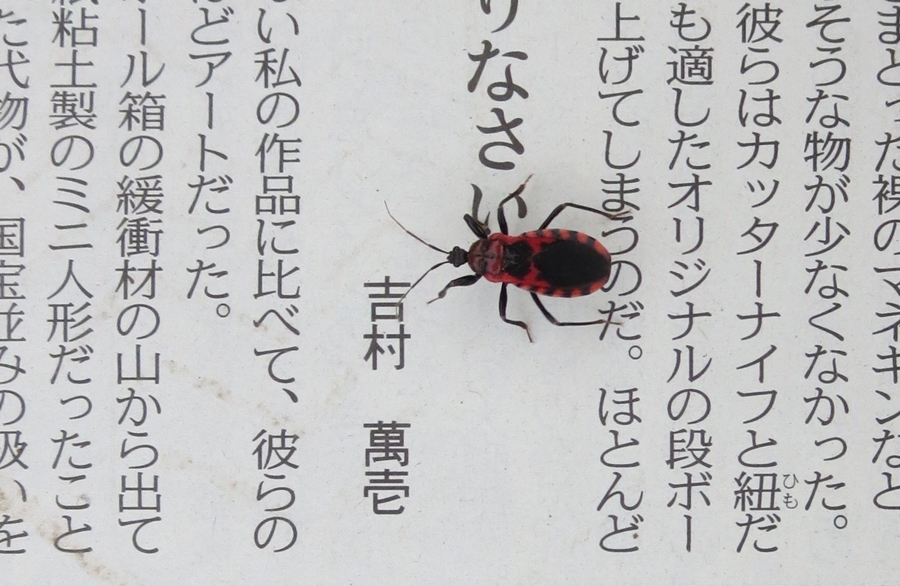 まとった裸のマネキンなど
そうな物が少なくなかった。
彼らはカッターナイフと紐だ
ひも
も適したオリジナルの段ボー
上げてしまうのだ。ほとんど
りなさい
吉村 萬壱
い私の作品に比べて、彼らの
どアートだった。
ール箱の緩衝材の山から出て
粘土製のミニ人形だったこと
た代物が、国宝並みの扱いを